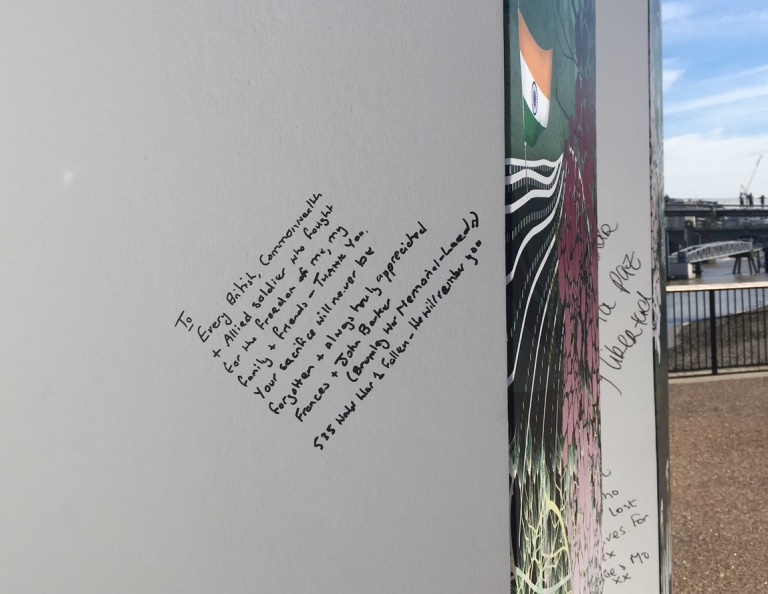 To
Every British, Commonwealth
+ Allied soldier who fought
for the freedom of me, my
family + friends - THANK YOU.
Your sacrifice will never be
forgotten + always truly appreciated
Frances + John Barker
(Bramley War Memorial - Leeds)
535 World War 1 Fallen - We will remember you
la paz
y libertad
ho
lost
ives for
xx
xx Mo